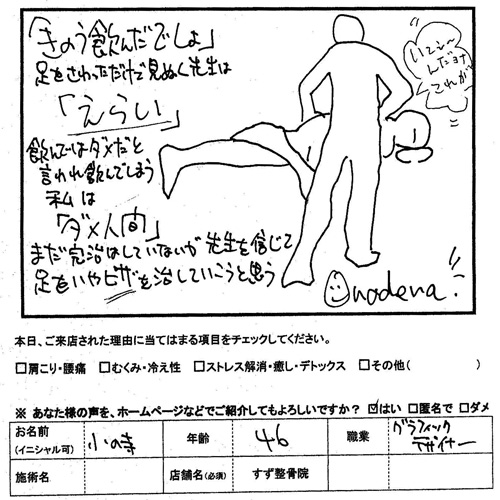 「きのう飲んだでしょ」
足をさわっただけで見ぬく先生は
「えらい」
飲んではダメだと
言われ飲んでしまう
私は
「ダメ人間」
まだ完治はしていないが先生を信じて
足をいやヒザを治していこうと思う
いてぇ〜
んだョナ
これが
onodera.
本日、ご来店された理由に当てはまる項目をチェックしてください。
□肩こり・腰痛 □むくみ・冷え性 □ストレス解消・癒し・デトックス □その他( )
※ あなた様の声を、ホームページなどでご紹介してもよろしいですか? ☑はい □匿名で □ダメ
お名前 (イニシャル可) 小の寺 年齢 46 職業 グラフィックデザイナー
施術名 店舗名(必須) すず整骨院